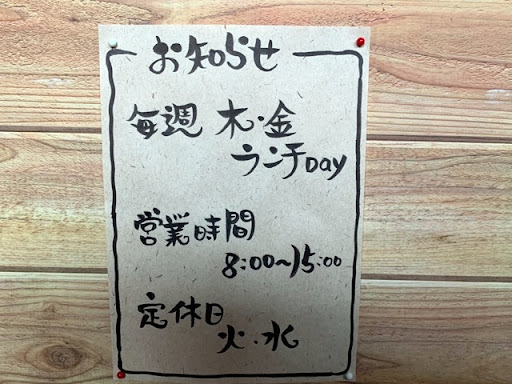 お知らせ
毎週 木・金
ランチDay
営業時間
8:00〜15:00
定休日
火・水